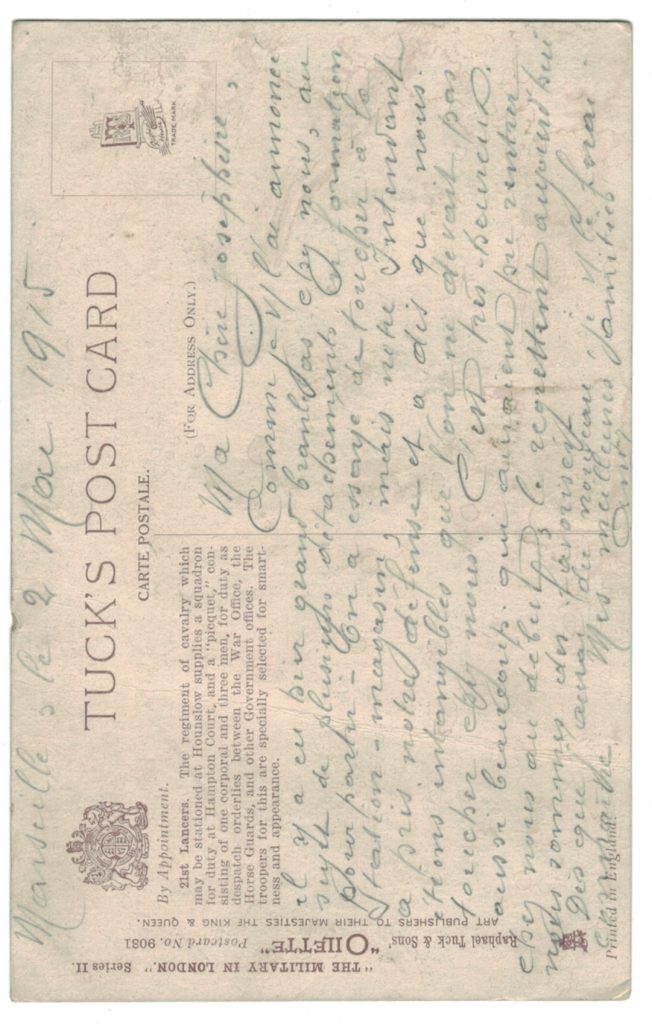 Marseille, le 2 Mai 1915
TUCK'S POST CARD
CARTE POSTALE.
(FOR ADDRESS ONLY.)
TRADE MARK
By Appointment.
21st Lancers. The regiment of cavalry which
may be stationed at Hounslow supplies a squadron
for duty at Hampton Court, and a "picquet," con-
sisting of one corporal and three men, for duty as
despatch orderlies between the War Office, the
Horse Guards, and other Government offices. The
troopers for this are specially selected for smart-
ness and appearance.
Ma Chère Josephine,
Comme je t'l'ai annoncé
il y a eu bien grand branlebas chez nous, au
sujet de plusieurs détachements en formation
pour partir - On a essayé de toucher à la
Station-magasin, mais notre Intendant
a pris notre défense et a dis que nous
étions intangibles que l'on ne devait pas
toucher chez nous. C'est très-heureux.
aussi beaucoup qui auraient pu rentrer
chez nous au début, le regrettent aujourd'hui
nous sommes des favorisés
Dès que j'aurai du nouveau je t'le ferai
connaître Mes meilleures amitiés
"THE MILITARY IN LONDON." Series II.
"OILETTE" Postcard No. 9081
Raphael Tuck & Sons'
ART PUBLISHERS TO THEIR MAJESTIES THE KING & QUEEN.
Printed in England